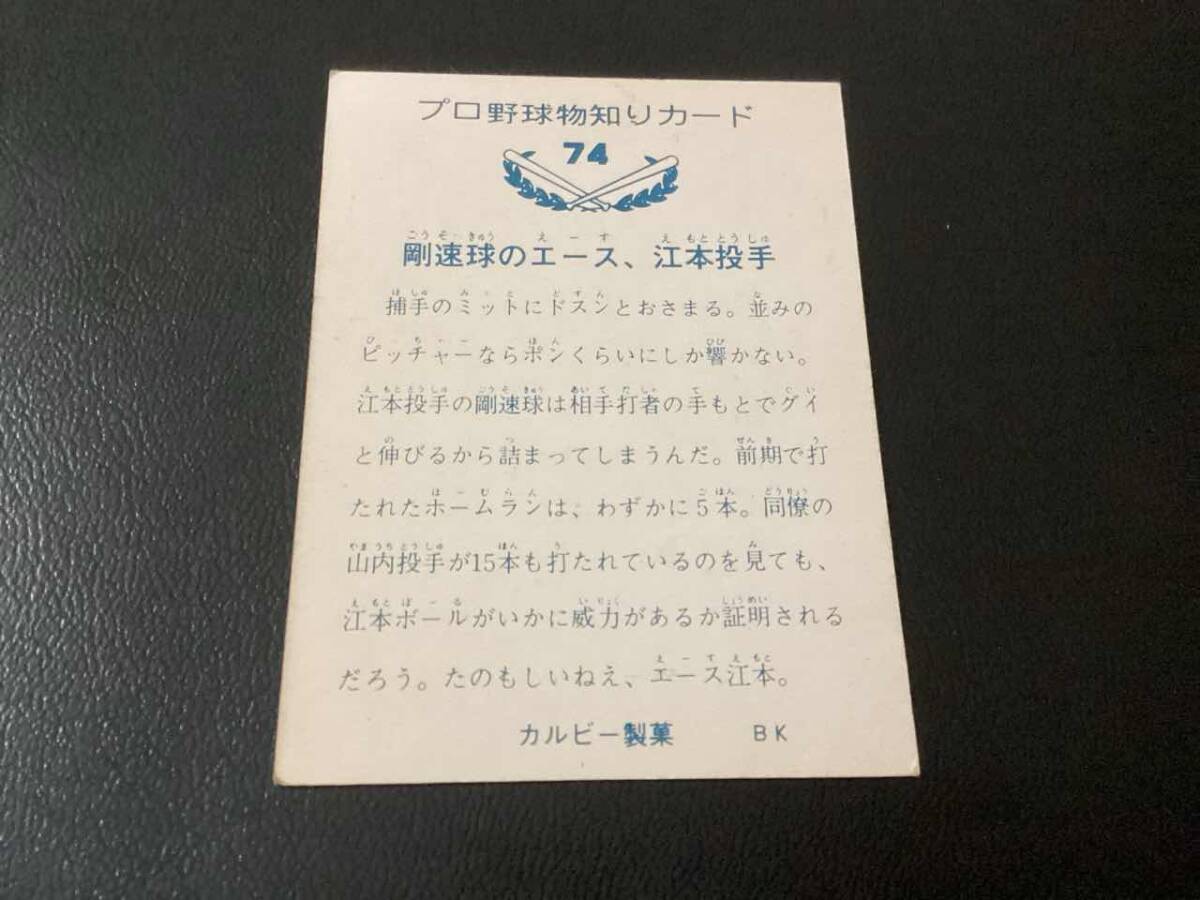 プロ野球物知りカード
74
剛速球のエース、江本投手
捕手のミットにドスンとおさまる。並みの
ピッチャーならポンくらいにしか響かない。
江本投手の剛速球は相手打者の手もとでグイ
と伸びるから詰まってしまうんだ。前期で打
たれたホームランは、わずかに5本。同僚の
山内投手が15本も打たれているのを見ても、
江本ボールがいかに威力があるか証明される
だろう。たのもしいねえ、エース江本。
カルビー製菓 BK